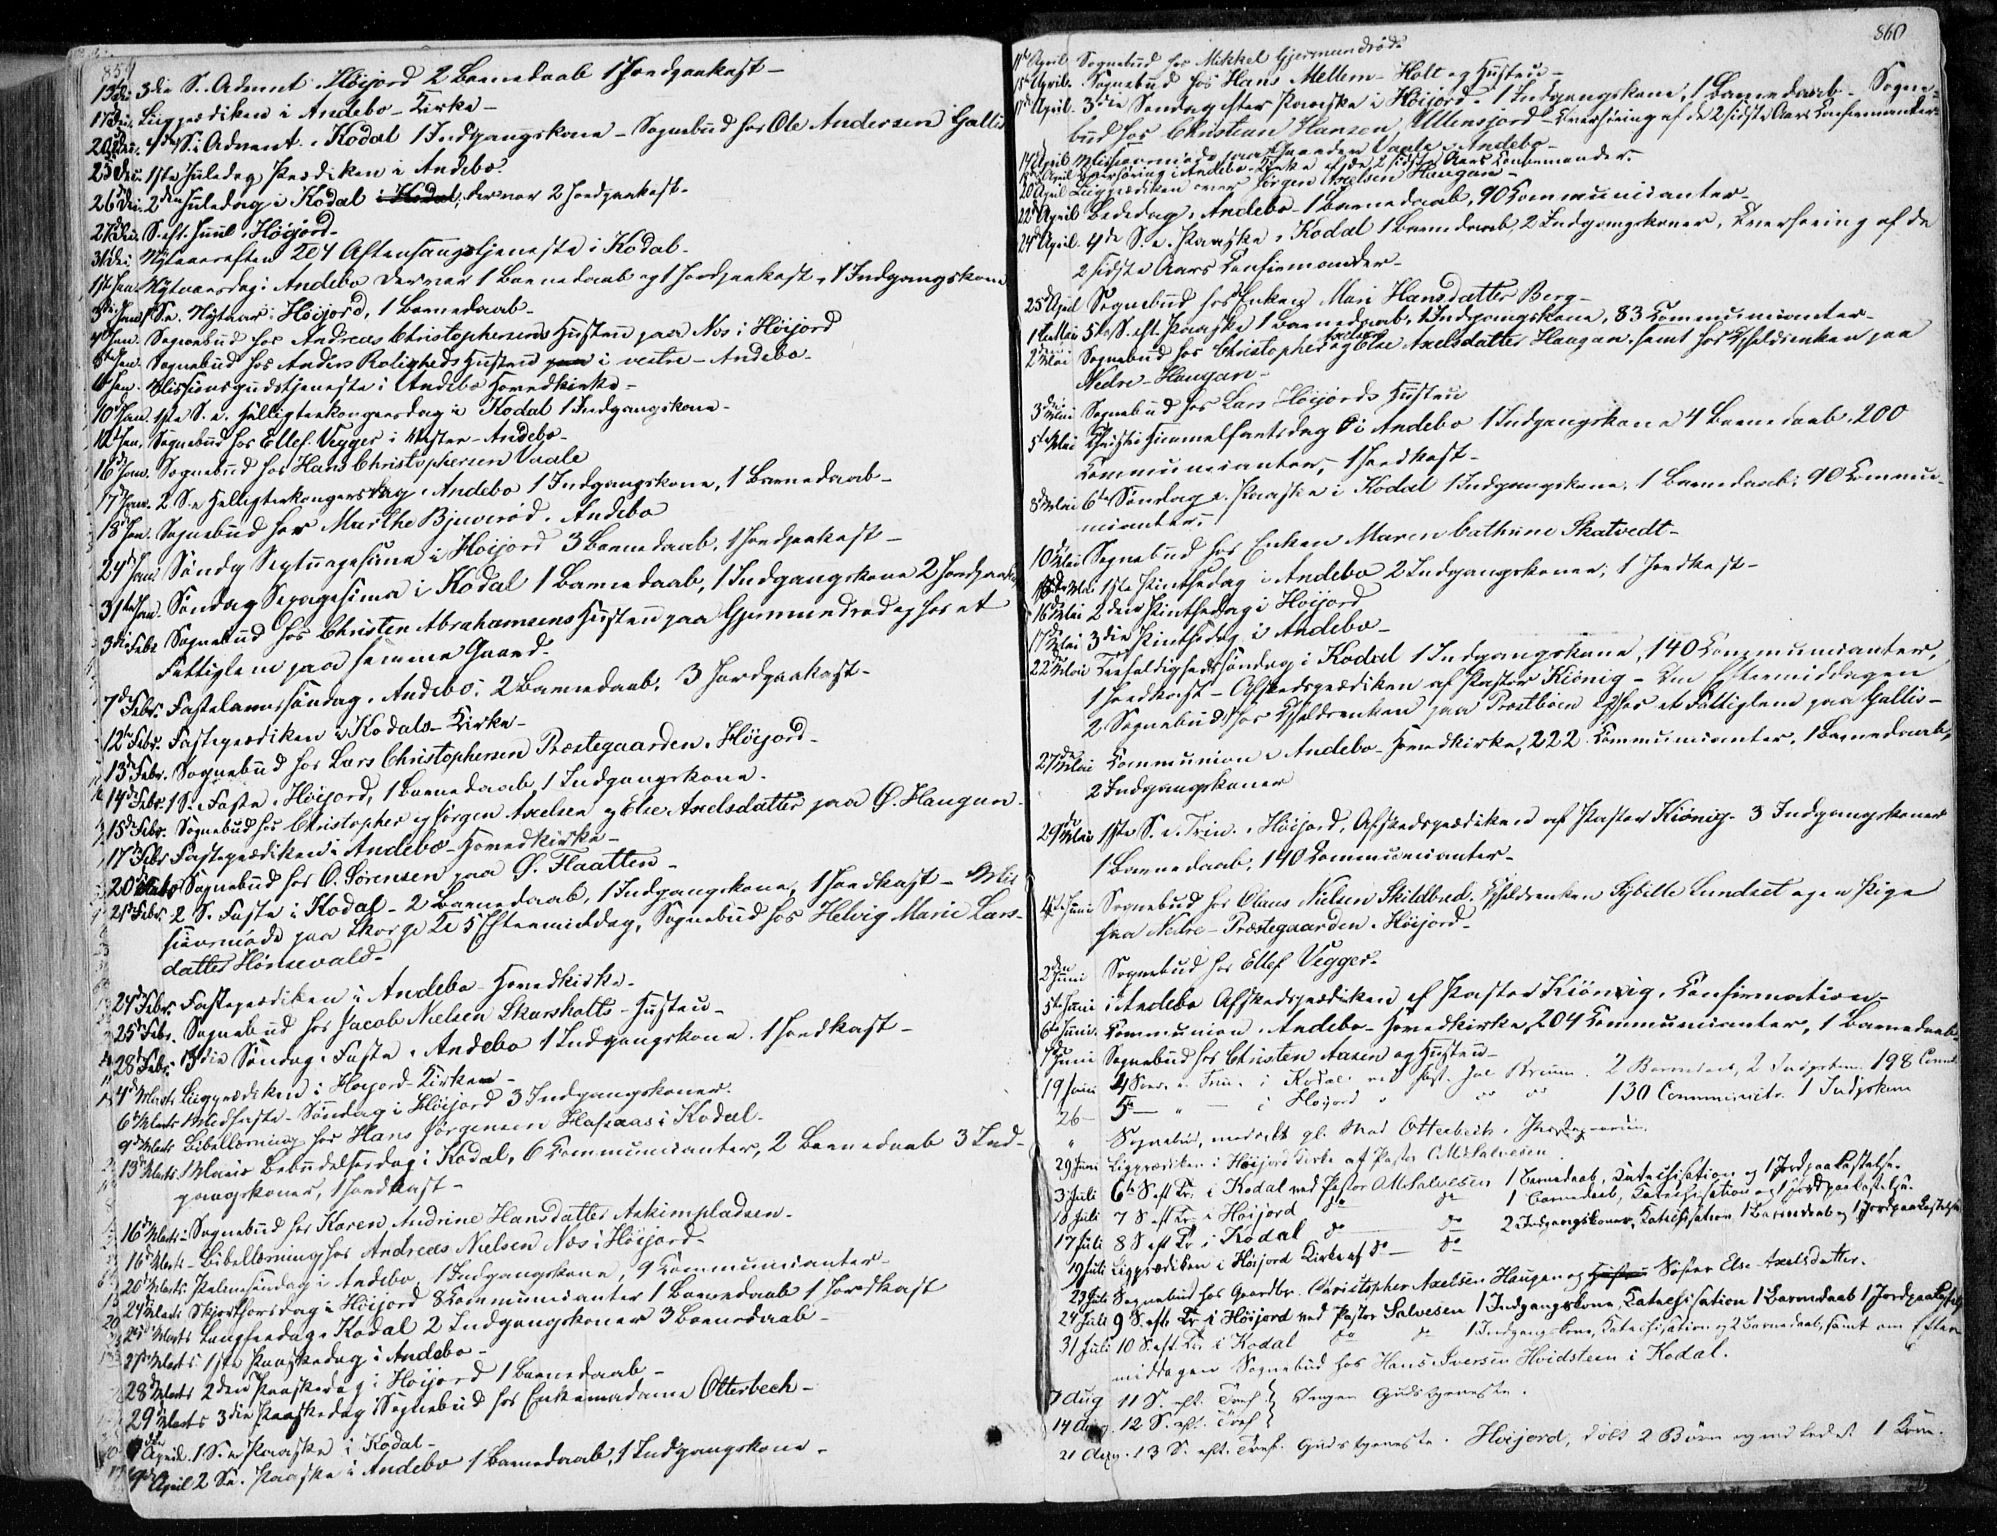 859
13de Dec. 3die S. Advent i Höijord 2 Barnedaab 1 Jordpaakast –
17de Dec. Liigprædiken i Andebo – Kirke –
20de Dec. 4de S. i Advent i Kodal 1 Indgangskone – Sognebud hos Ole Andersen Gallis
25de Dec. 1ste Juledag Prædiken i Andebo.
26de Dec. 2den Juledag i Kodal i Kodal, der var 2 Jordpaakast.
27de Dec. S. eft. Juul i Höijord –
31te Dec. Nytaarsaften Aftensangstjeneste i Kodal –
1ste Jan. Nytaarsdag i Andebo der var 1 Barnedaab og 1 Jordpaakast, 1 Indgangskone
3die Jan. S. e. Nytaar i Höijord, 1 Barnedaab –
4de Jan. Sognebud hos Andreas Christophersens Hustru paa Nos i Höijord
8de Jan. Sognebud hos Anders Roligheds Hustru paa i vestre – Andebo –
6te Jan. Missionsgudstjeneste i Andebo Hovedkirke –
10de Jan. 1ste S. e. Helligtrekongersdag i Kodal 1 Indgangskone –
12te Jan. Sognebud hos Ellef Vegger i Vester – Andebo –
16de Jan. Sognebud hos Hans Christophersen Vaale
17de Jan. 2 S. e Helligtrekongersdag i Andebo 1 Indgangskone, 1 Barnedaab –
18de Jan. Sognebud hos Marthe Bjuerød i Andebo
24de Jan. Söndag Septuagesima i Höijord 3 Barnedaab, 1 Jordpaakast –
31te Jan. Söndag Sexagesima i Kodal 1 Barnedaab, 1 Indgangskone 2 Jordpaak
3die Febr. Sognebud hos Christen Abrahamsens Hustru paa Gjermundrød og hos et
Fattiglem paa samme Gaard.
7de Febr. Fastelavnssöndag i Andebo, 2 Barnedaab, 3 Jordpaakast –
12te Febr. Fasteprædiken i Kodals – Kirke –
13de Febr. Sognebud hos Lars Christophersen Præstegaarden i Höijord –
14de Febr. 1 S. i Faste i Höijord, 1 Barnedaab, 1 Indgangskone.
15de Febr. Sognebud hos Christopher og Jörgen Axelsen og Else Axelsdatter paa Ø. Haugan
17de Febr. Fasteprædiken i Andebo – Hovedkirke –
20de Febr. Sognebud hos O. Sørensen paa Ø. Flaatten –
21de Febr. 2 S. i Faste i Kodal – 2 Barnedaab, 1 Indgangskone, 1 Jordkast – Mis
sionsmöde paa Skorge Kl 5 Eftermiddag, Sognebud hos Helvig Marie Lars
datter Hönsevald –
24de Febr. Fasteprædiken i Andebo – Hovedkirke.
25de Febr. Sognebud hos Jacob Nielsen Skarsholts – Hustru –
28de Febr. 3die Söndag i Faste i Andebo 1 Indgangskone, 1 Jordkast –
4de Marts Liigprædiken i Höijord – Kirken –
6te Marts Midfaste – Söndag i Höijord 3 Indgangskoner.
9de Marts Bibellæsning hos Hans Jörgensen Hasaas i Kodal –
13de Marts Mariæ Bebudelsesdag i Kodal, 6 Communicanter, 2 Barnedaab 3 Ind –
gangskoner, 1 Jordkast –
16de Marts – Sognebud hos Karen Andrine Hansdatter Askimpladsen –
16de Marts – Bibellæsning hos Andreas Nielsen Nos i Höijord –
20de Marts. Palmesöndag i Andebo, 1 Indgangskone, 9 Communicanter –
24de Marts Skjærthorsdag i Höijord 8 Communicanter 1 Barnedaab 1 Jordkast
25de Marts Langfredag i Kodal 2 Indgangskoner 3 Barnedaab –
27de Marts 1ste Paaskedag i Andebo –
28de Marts 2den Paaskedag i Höijord 1 Barnedaab –
29de Marts 3die Paaskedag Sognebud hos Enkemadame Otterbech –
April. 1. S. e. Paaske i Kodal –
April 2 S. e. Paaske i Andebo 1 Barnedaab, 1 Indgangskone –
860
April Sognebud hos Mikkel Gjermundröd.
15de April. Sognebud hos Hans Mellem – Holt og Hustru –
17de April. 3die Söndag efter Paaske i Höijord. 1 Indgangskone, 1 Barnedaab – Sogne –
bud hos Christian Hansen Illensjord – Overhöring af de 2 sidste Aars Confirmander
April Missionsmöde paa Gaarden Vaale i Andebo –
April Overhöring i Andebo – Kirke af de 2 sidste Aars Confirmander.
20de April Liigprædiken over Jörgen Axelsen Haugan –
22de April Bededag i Andebo – 1 Barnedaab, 90 Communicanter –
24de April. 4de S. e. Paaske i Kodal 1 Barnedaab, 2 Indgangskoner, Overhöring af de
2 sidste Aars Confirmander –
25de April Sognebud hos Enken Mari Hansdatter Berg –
1ste Mai 5te S. eft. Paaske 1 Barnedaab, 1 Indgangskone, 83 Communicanter –
2de Mai Sognebud hos Christopher Axelsen og Else Axelsdatter Haugan, samt hos Skoldsenken paa
Nedre – Haugan –
3die Mai Sognebud hos Lars Höijords Hustru
5te Mai Christi Himmelfartsdag i Andebo 1 Indgangskone 4 Barnedaab, 200
Communicanter, 1 Jordkast –
8de Mai 6te Söndag e. Paaske i Kodal 1 Indgangskone, 1 Barnedaab, 90 Commu –
nicanter.
10de Mai Sognebud hos Enken Maren Cathrine Skatvedt –
15de Mai 1ste Pintsedag i Andebo 2 Indgangskoner, 1 Jordkast –
16de Mai 2den Pintsedag i Höijord
17de Mai 3die Pintsedag i Andebo –
22de Mai Trefoldighedssöndag i Kodal 1 Indgangskone, 140 Communicanter,
1 Jordkast – Afskedsprædiken af Pastor Kiönig – Om Eftermiddagen
2 Sognebud: hos Skoldsenken paa Præstbøen og hos et Fattiglem paa Gallis –
27de Mai Communion i Andebo – Hovedkirke, 222 Communicanter, 1 Barnedaab,
2 Indgangskoner
29de Mai 1ste S. e. Trin. i Höijord, Afskedsprædiken af Pastor Kiönig. 3 Indgangskoner
1 Barnedaab, 140 Communicanter –
Juni Sognebud hos Claus Nielsen Skildbred, Skoldsenken Sybille Lundset og en Pige
paa Nedre – Præstegaarden i Höijord –
2den Juni Sognebud hos Ellef Vegger –
5te Juni i Andebo Afskedsprædiken af Pastor Kiönig, Confirmation –
6te Juni. Communion i Andebo – Hovedkirke, 204 Communicanter, 1 Barnedaab.
7de Juni Sognebud hos Christen Aasen og Hustru –
19 Juni 4 Sönd. e. Trin. i Kodal ved Past. Jul Bruun. 2 Barnedaab, 2 Indgskon. 198 Comm
26 – 5te – " – i Höijord " " " 130 Communict. 1 Indgskone
" Sognebud, meddelt gl. Mad Otterbech i Præstegaarden.
29 Juni Liigprædiken i Höijord Kirke af Pastor O M Salvesen
3 Juli 6te S eft Tr. i Kodal ved Pastor O M Salvesen 1 Barnedaab, Katechisation og 1 Jordpaakastelse.
10 Juli 7 S eft Tr. i Höijord do do 1 Barnedaab, Katechisation og 1 Jordpaakastelse.
17 Juli 8 S eft Tr. i Kodal do do 2 Indgangskoner, Katechisation 1 Barnedaab og 1 Jordpaakastelse
19 Juli Ligprædiken i Höijord Kirke af do – do
23 Juli Sognebud hos Gaardbr. Christopher Axelsen Haugen og Hustru Söster Else Axelsdatter.
24 Juli 9 S. eft. Tr. i Höijord ved Pastor Salvesen 1 Indgangskone, Katechisation 1 Barnedaab 1 Jordpaakast
31 Juli 10 S. eft. Tr. i Kodal do do 1 Indgangskone, Katechisation og 2 Barnedaab, samt om Efter
middagen Sognebud hos Hans Iversen Hvidsteen i Kodal.
7 Aug 11 S. eft. Tref } Ingen Gudstjeneste.
14 Aug. 12 S. eft. Tref }
21 Aug. 13 S. eft. Tref. Gudstjeneste i Höijord, döbt 2 Börn og indledet 1 Kone.